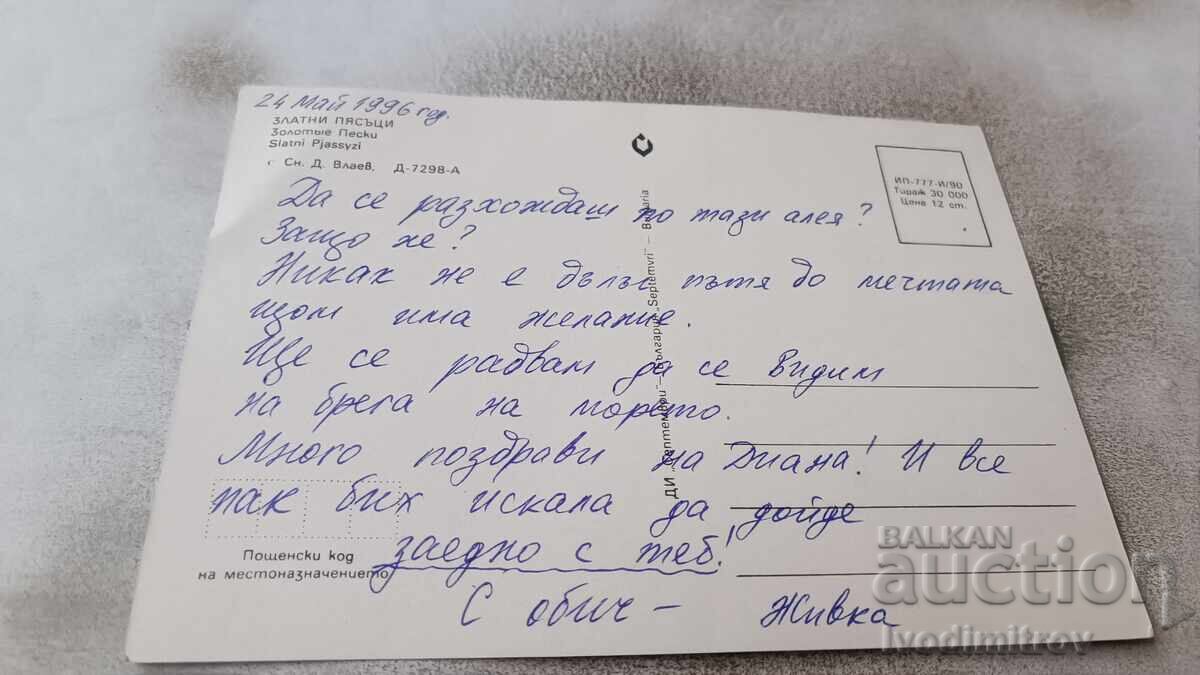 24 Май 1996 год.
ЗЛАТНИ ПЯСЪЦИ
Золотые Пески
Slatni Pjassyzi
Сн. Д. Влаев, Д-7298-А
ИП-777-И/90
Тираж 30 000
Цена 12 ст.
Да се разхождаш по тази алея?
Защо не?
Никак не е дълъг пътя до мечтата
щом има желание.
Ще се радвам да се видим
на брега на морето.
Много поздрави на Диана! И все
пак бих искала да дойде
заедно с теб!
С обич – Живка
ДИ „Септември" – България „Septemvri" – Bulgaria
Пощенски код
на местоназначението
BALKAN
auction
ivodimitrov